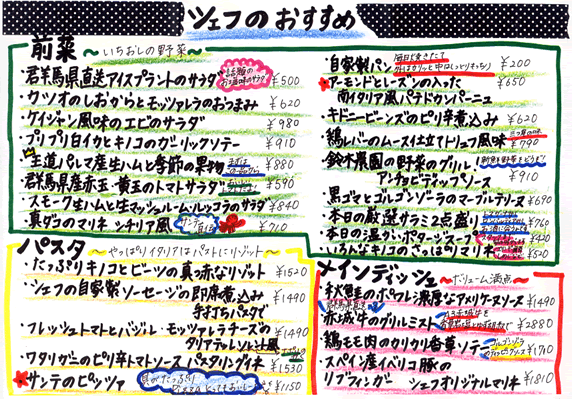 シェフのおすすめ
前菜 ～いちおしの野菜～
・君羊馬県直送アイスプラントのサラダ ¥500
・カツオのしおからとモッツァレラのおつまみ ¥620
・ケイジャン風味のエビのサラダ ¥980
・プリプリ白イカとキノコのガーリックソテー ¥910
王道パルマ産生ハムと季節の果物 ¥880
・群馬県産赤玉・黄玉のトマトサラダ ¥590
・スモーク生ハムと生マッシュルーム・ルッコラのサラダ ¥840
・真ダコのマリネ シチリア風 ¥710
・自家製パン 毎日焼きたて ¥200
外はカリッと中はしっとりもっちり
アーモンドとレーズンの入った ¥650
南イタリア風パテドカンパーニュ
・キドニービーンズのピリ辛煮込み ¥620
・鶏レバーのムース仕立てトリュフ風味 ¥790
・鈴木農園の野菜のグリル!
アンチョビディップソース ¥910
・黒ゴマとゴルゴンゾーラのマーブルテリーヌ ¥690
・本日の厳選サラミ2点盛り ¥760
・本日の温かいポタージュスープ ¥420
・いろんなキノコのさっぱりマリネ ¥520
パスタ ～やっぱりイタリアはパスタにリゾット～
・たっぷりキノコとビーツの真っ赤なリゾット ¥1520
・シェフの自家製ソーセージの即席煮込み ¥1490
手打ちパスタで
・フレッシュトマトとバジル・モッツァレラチーズの ¥1490
タリアテッレソレント風
・ワタリガニのピリ辛トマトソース パスタリングイネ ¥1530
サンテのピッツァ ¥1150
メインディッシュ ～ボリューム満点～
・秋鮭のポワレ濃厚なアメリケーヌソース ¥1490
・赤城牛のグリルミスト ¥2880
・鶏モモ肉のカリカリ香草ソテー ¥1710
・スペイン産イベリコ豚の
リブフィンガー シェフオリジナルマリネ ¥1810